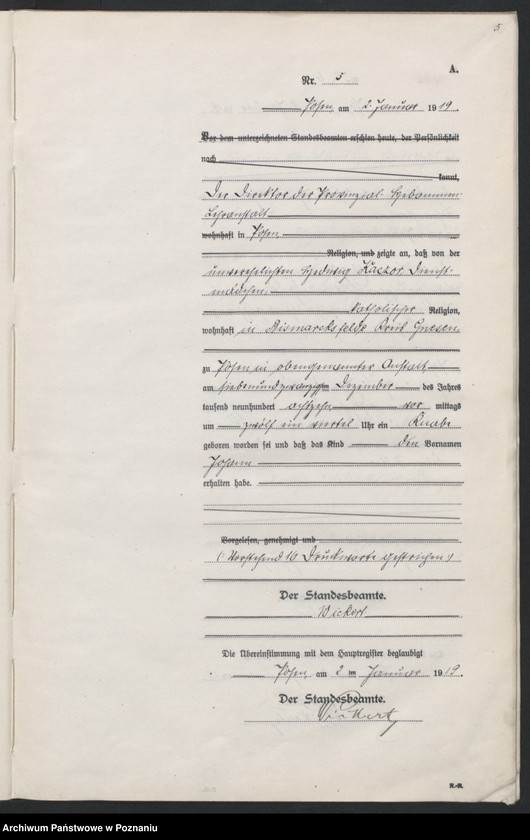 5
A.
Nr. 5
Posen am 2. Januar 1919.
Vor dem unterzeichneten Standesbeamten erschien heute, der Persönlichkeit
nach
kannt,
Der Direktor der Provinzial-Hebammen-
Lehranstalt
wohnhaft in Posen
Religion, und zeigte an, daß von der
unverehelichten Hedwig Kaczor, Dienst-
mädchen,
katholischer Religion,
wohnhaft in Bismarcksfelde Kreis Gnesen
zu Posen in obengenannter Anstalt
am siebenundzwanzigsten Dezember des Jahres
tausend neunhundert achtzehn vor mittags
um zwölf ein viertel Uhr ein Knabe
geboren worden sei und daß das Kind den Vornamen
Johann
erhalten habe.
Vorgelesen, genehmigt und
(Vorstehend 16 Druckworte gestrichen)
Der Standesbeamte.
Wickert
Die Übereinstimmung mit dem Hauptregister beglaubigt
Posen am 2 ten Januar 1919.
Der Standesbeamte.
Wickert
R.-R.
Archiwum Państwowe w Poznaniu